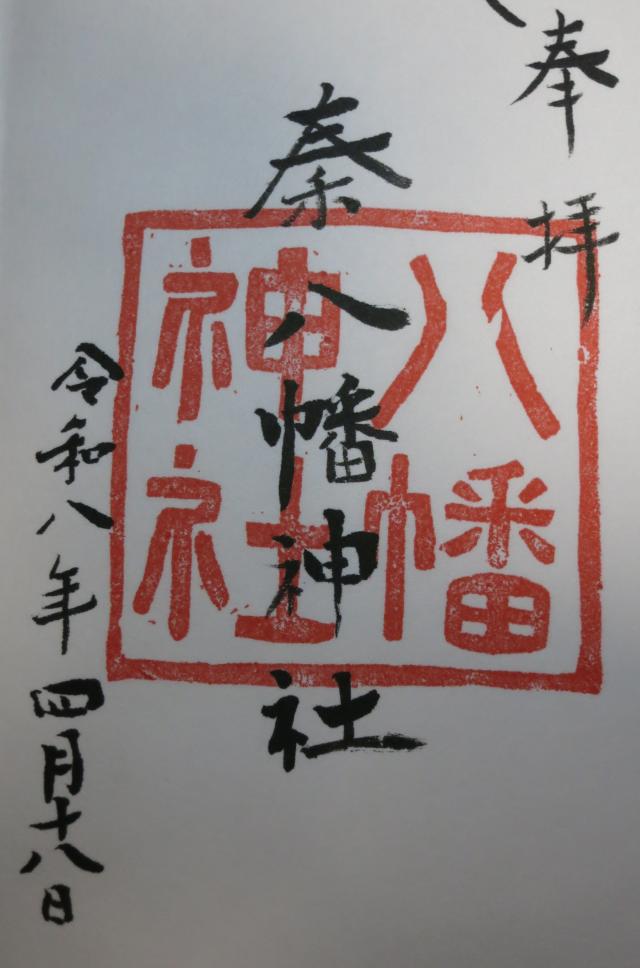 奉拝
秦八幡神社
八幡
神社
令和八年四月十八日